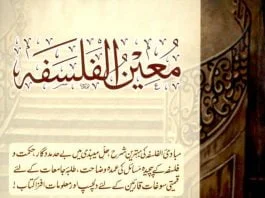 مُعین الفلسفہ
مبادیٔ الفلسفہ کی بہترین شرح حل میبذی میں بے حد مددگار، حکمت و
فلسفہ کے پیچیدہ مسائل کی عمدہ وضاحت، طلبۂ جامعات کے لئے
قیمتی سوغات قارئین کے لئے دلچسپ و معلومات افزا کتاب!